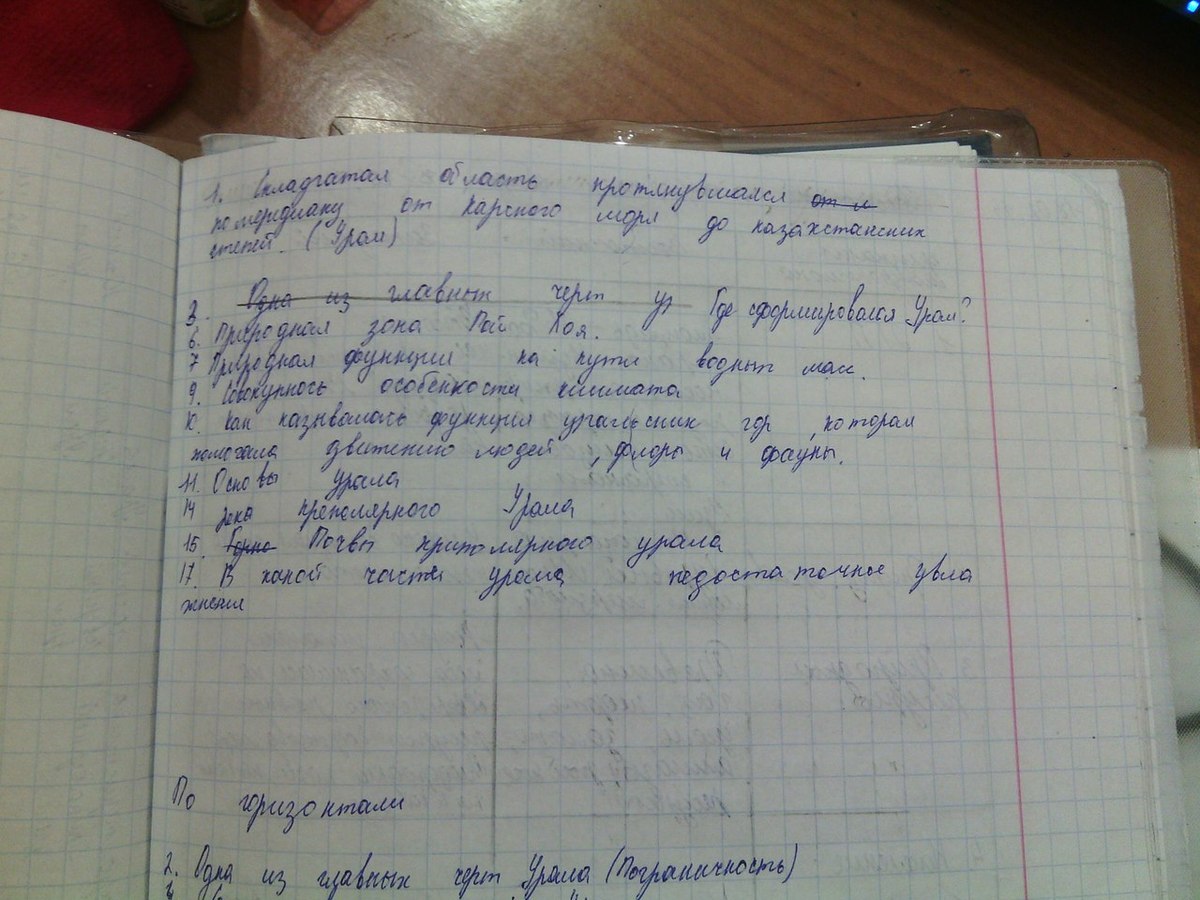 1. Складчатая область протянувшаяся от м
по меридиану от Карского моря до казахстанских
степей. (Урал)
3. Одна из главных черт ур Где сформировался Урал?
6. Природная зона Пай Хоя.
7 Природная функция на пути водных масс.
9. Совокупнось особености климата
10. Как называлась функция уральских гор, которая
помогала движению людей, флоры и фауны.
11. Основы урала
14 река преполярного Урала
15. Горно Почвы приполярного урала
17. В какой части урала недостаточное увла
жнения
По горизонтали
2. Одна из главных черт Урала (Пограничность)